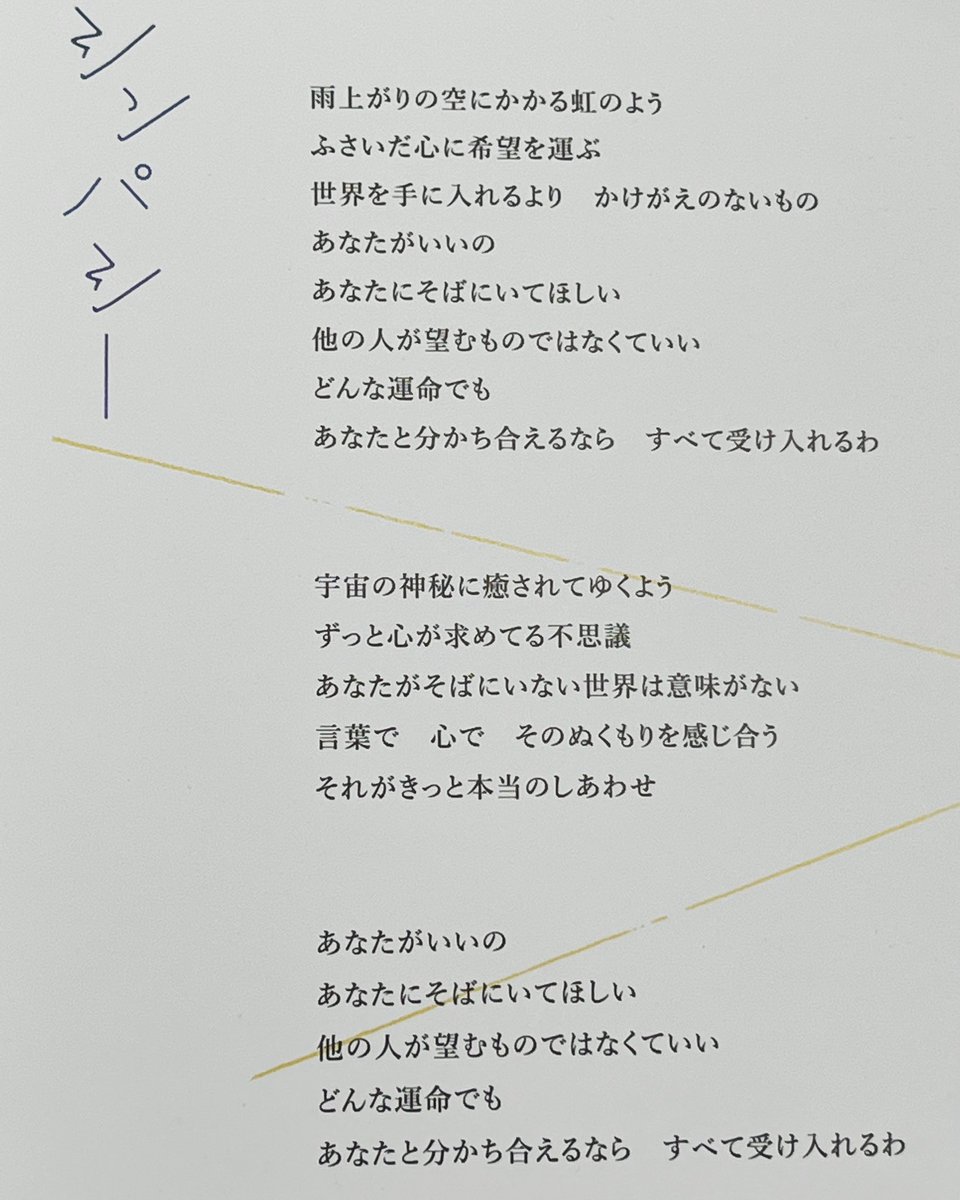 シンパシー
雨上がりの空にかかる虹のよう
ふさいだ心に希望を運ぶ
世界を手に入れるより　かけがえのないもの
あなたがいいの
あなたにそばにいてほしい
他の人が望むものではなくていい
どんな運命でも
あなたと分かち合えるなら　すべて受け入れるわ
宇宙の神秘に癒されてゆくよう
ずっと心が求めてる不思議
あなたがそばにいない世界は意味がない
言葉で　心で　そのぬくもりを感じ合う
それがきっと本当のしあわせ
あなたがいいの
あなたにそばにいてほしい
他の人が望むものではなくていい
どんな運命でも
あなたと分かち合えるなら　すべて受け入れるわ